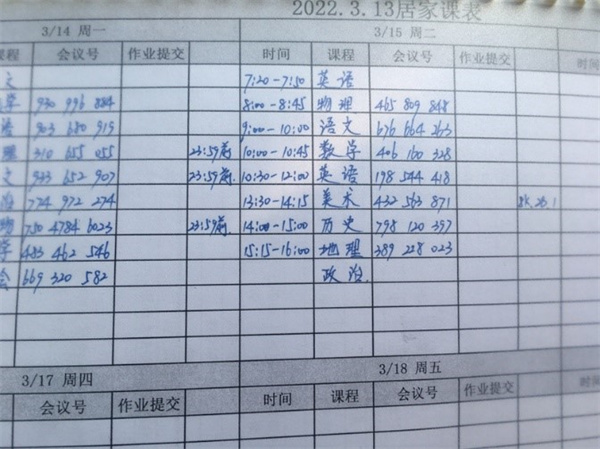 2022.3.13居家课表
3/14 周一 3/15 周二
课程 会议号 作业提交 时间 课程 会议号 作业提交
文 7:20-7:50 英语
学 930 996 884 8:00-8:45 物理 465 809 848
语 903 680 919 9:00-10:00 语文 676 664 263
理 310 655 055 23:59前 10:00-10:45 数学 406 100 328
文 933 652 907 23:59前 10:30-12:00 英语 198 544 418
治 774 972 274 13:30-14:15 美术 432 563 871
物 750 4784 6023 23:59前 14:00-15:00 历史 798 120 397
学 483 462 546 15:15-16:00 地理 389 228 023
会 669 320 582 政治
3/17 周四 3/18 周五
会议号 作业提交 时间 课程 会议号 作业提交 时